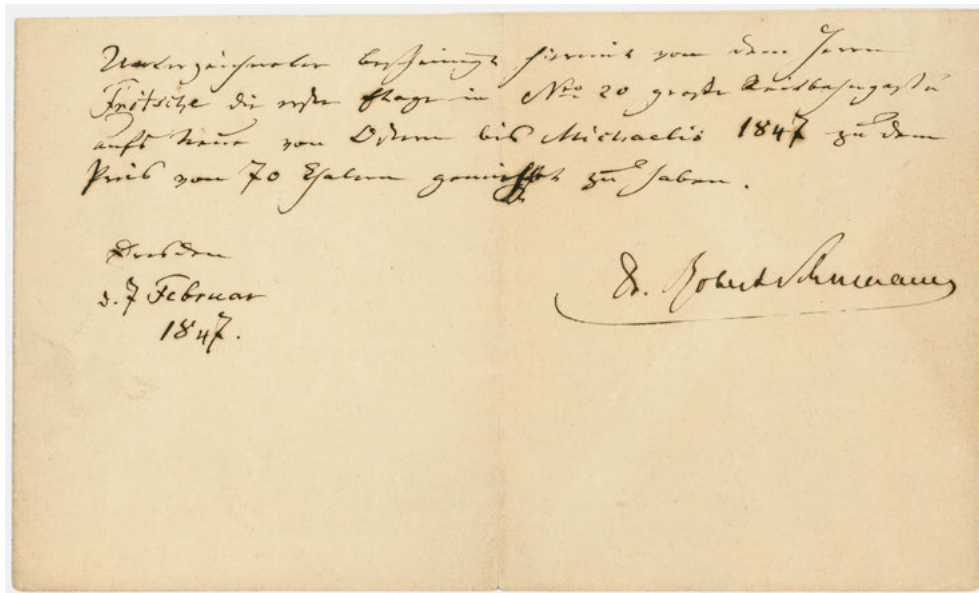 Unterzeichneter bescheinigt hiermit von dem Herrn
Fritsche die erste Etage in No 20 große Reitbahngasse
aufs Neue von Ostern bis Michaelis 1847 zu dem
Preis von 70 Thalern gemiethet zu haben.
Dresden
d. 7 Februar
1847.
Dr. Robert Schumann